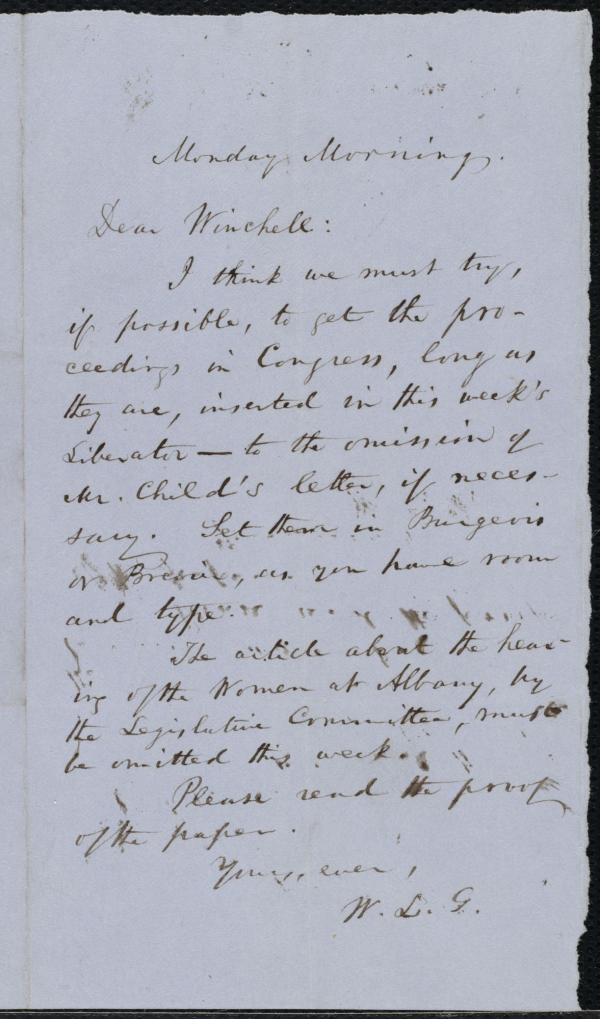 Monday Morning.
Dear Winchell:
I think we must try,
if possible, to get the pro-
ceedings in Congress, long as
they are, inserted in this week's
Liberator — to the omission of
Mr. Child's letter, if neces-
sary. Set them in Burgeois
or Brevier, as you have room
and type.
The article about the hear-
ing of the Women at Albany, by
the Legislative Committee, must
be omitted this week.
Please read the proof
of the paper.
Yours, ever,
W. L. G.